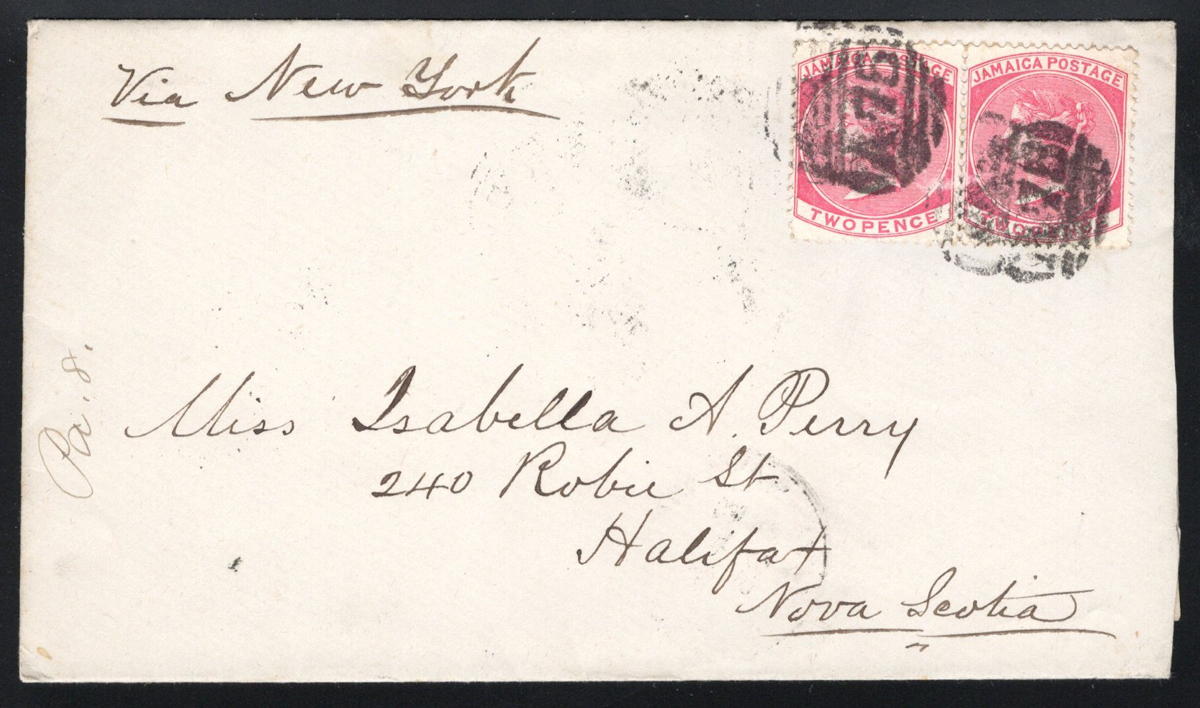 Via New York
JAMAICA POSTAGE
TWO PENCE
A78
JAMAICA POSTAGE
TWO PENCE
Miss Isabella A. Perry
240 Robie St
Halifax
Nova Scotia